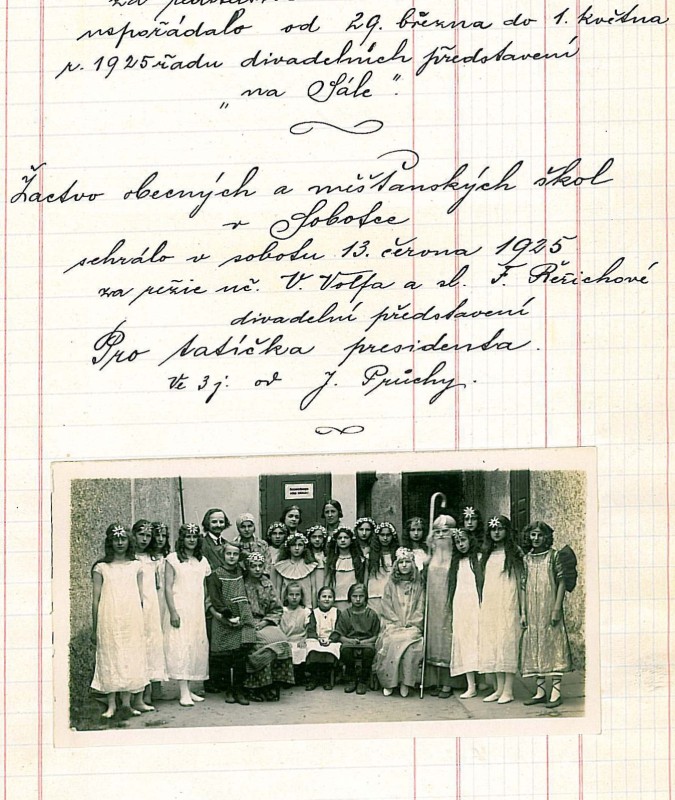 uspořádalo od 29. března do 1. května
r. 1925 řadu divadelních představení
„na Sále".
Žactvo obecných a měšťanských škol
v Sobotce
sehrálo v sobotu 13. června 1925
za režie uč. V. Volfa a sl. F. Řeřichové
divadelní představení
Pro tatíčka presidenta.
Ve 3 j. od J. Průchy.